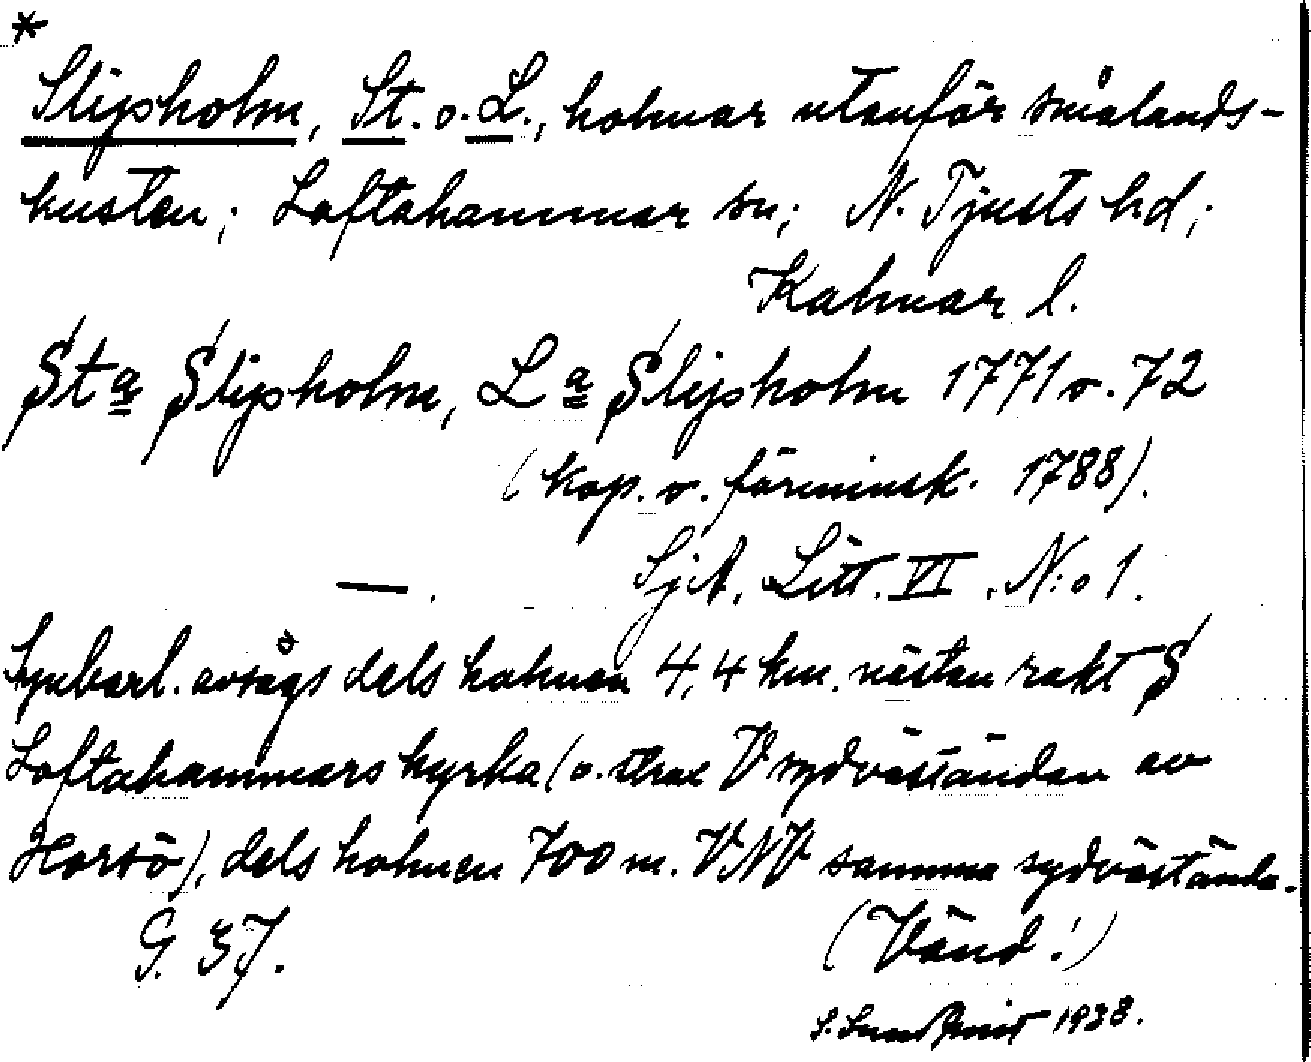 *
Slipsholm, St. o. L., holmar utanför smålands-
kusten; Loftahammar sn; N. Tjusts hd;
Kalmar l.
Sta Slipsholm, La Slipsholm 1771 o. 72
(kop. o. förminsk. 1788).
SjA. Litt. VI. N:o 1.
— .
Synbarl. avsågs dels holmen 4,4 km. nästan rakt S
Loftahammars kyrka (o. strax V sydväständan av
Horsö), dels holmen 700 m. VNV samma sydvästände.
G. 37.
(Vänd!)
S. Sundqvist 1938.